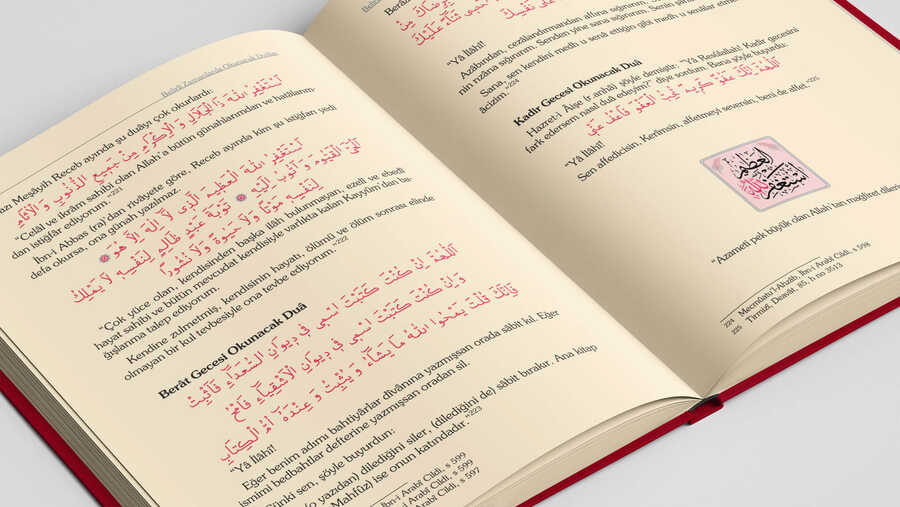 Belirli Zamanlarda Okunacak Dualar
azı Meşâyih Receb ayında şu duâyı çok okurlardı:
اَسْتَغْفِرُ اللّٰهَ ذَا الْجَلَالِ وَ الْاِكْرَامِ مِنْ جَمِيعِ الذُّنُوبِ وَ الْاٰثَامِ
"Celâl ve ikrâm sahibi olan Allah'a bütün günahlarımdan ve hatâların-
dan istiğfâr ediyorum."221
İbn-i Abbas (ra)'dan rivâyete göre, Receb ayında kim şu istiğfarı yedi
defa okursa, ona günah yazılmaz.
اَسْتَغْفِرُ اللّٰهَ الْعَظِيمَ الَّذِى لَا اِلٰهَ اِلَّا هُوَ
اَلْحَىَّ الْقَيُّومَ وَ اَتُوبُ اِلَيْهِ تَوْبَةَ عَبْدٍ ظَالِمٍ لِنَفْسِهِ لَا يَمْلِكُ
لِنَفْسِهِ مَوْتًا وَلَا حَيٰوةً وَلَا نُشُورًا
"Çok yüce olan, kendisinden başka ilâh bulunmayan, ezelî ve ebedî
hayat sahibi ve bütün mevcudat kendisiyle varlıkta kalan Kayyûm'dan ba-
ğışlanma talep ediyorum.
Kendine zulmetmiş, kendisinin hayatı, ölümü ve ölüm sonrası elinde
olmayan bir kul tevbesiyle ona tevbe ediyorum."222
Berât Gecesi Okunacak Duâ
اَللّٰهُمَّ اِنْ كُنْتَ كَتَبْتَ اسْمِى فِى دِيوَانِ السُّعَدَاءِ فَاَثْبِتْ
وَاِنْ كُنْتَ كَتَبْتَ اسْمِى فِى دِيوَانِ الْاَشْقِيَاءِ فَامْحُ
فَاِنَّكَ قُلْتَ يَمْحُوا اللّٰهُ مَا يَشَاءُ وَ يُثْبِتُ وَ عِنْدَهُ اُمُّ الْكِتَابِ
"Yâ İlâhî!
Eğer benim adımı bahtiyârlar dîvânına yazmışsan orada sâbit kıl. Eğer
ismimi bedbahtlar defterine yazmışsan oradan sil.
Çünki sen, şöyle buyurdun:
(o yazıdan) dilediğini siler, (dilediğini de) sâbit bırakır. Ana kitap
Mahfûz) ise onun katındadır."223
İbn-i Arabî Cildi, s 599
Arabî Cildi, s 599
Arabî Cildi, s 597
"Yâ İlâhî!
Azâbından, cezâlandırmandan affına sığınırım.
nin rızâna sığınırım. Senden yine sana sığınırım.
Sana, sen kendini medh u senâ ettiğin gibi medh u senâlar etme
âcizim."224
Kadir Gecesi Okunacak Duâ
Hazret-i Âişe (r.anhâ) şöyle demiştir: "Yâ Resûlallah! Kadir gecesini
fark edersem nasıl duâ edeyim?" diye sordum. Bana şöyle buyurdu:
اَللّٰهُمَّ اِنَّكَ عَفُوٌّ كَرِيمٌ تُحِبُّ الْعَفْوَ فَاعْفُ عَنِّى
"Yâ İlâhî!
Sen affedicisin, Kerîmsin, affetmeyi seversin, beni de affet."225
"Azametli pek büyük olan Allah'tan mağfiret dilerim
224 Mecmûatu'l-Ahzâb, İbn-i Arabî Cildi, s 598
225 Tirmizî, Deavât, 85, h no 3513